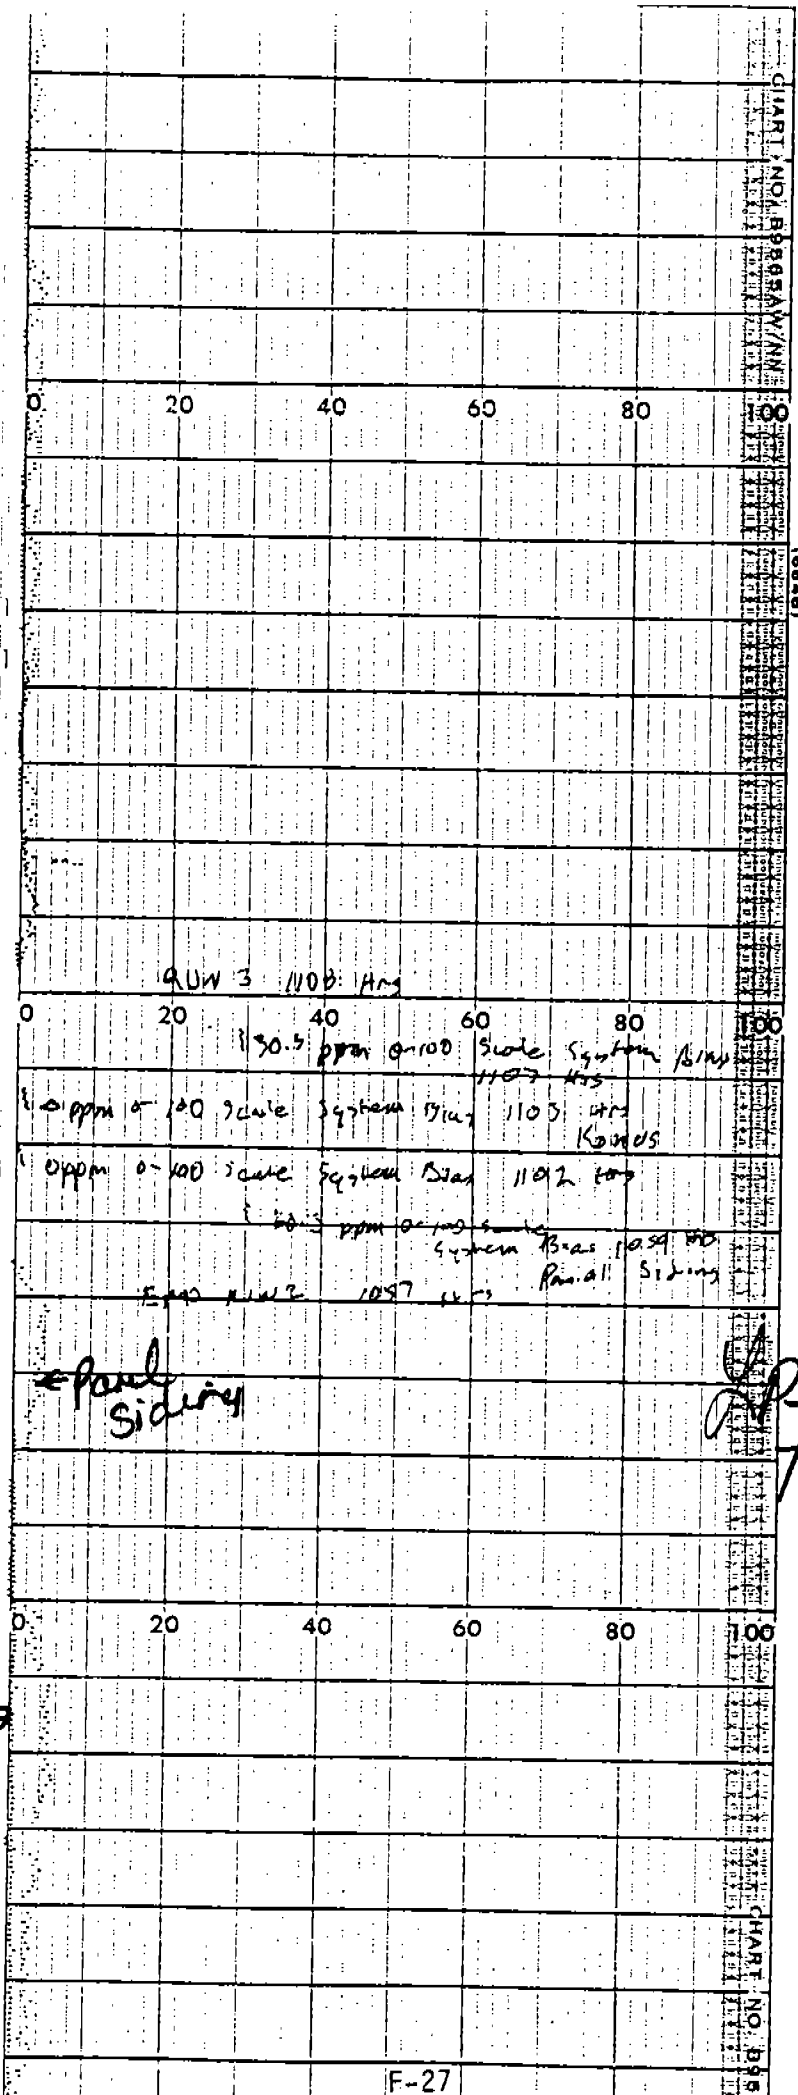 CHART NO. B9565AW/NN
0 20 40 60 80 100
RUN 3 1108 Hrs
0 20 40 60 80 100
30.5 ppm 0-100 Scale System Bias
1107 Hrs
0 ppm 0-100 Scale System Bias 1103 Hrs
0 ppm 0-100 scale System Bias 1102 Hrs
ppm 0-100 scale
System Bias 1059
Siding
END RUN 2 1057 Hrs
← Panel
Siding
0 20 40 60 80 100
CHART NO. B95
F-27